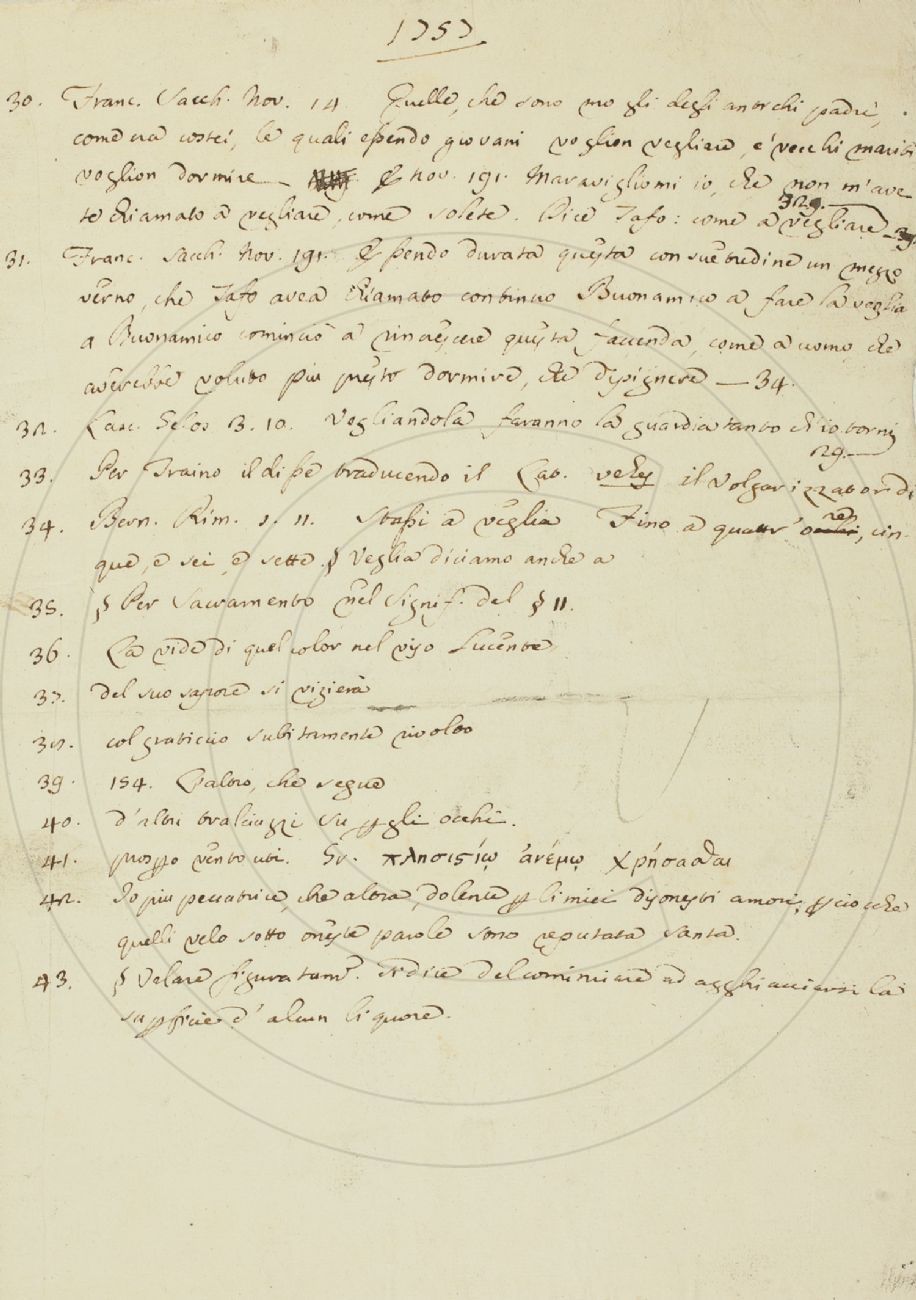 1757
30. Franc. Sacch. Nov. 14. Quelle, che sono mogli degli antichi padri,
come era costei, le quali essendo giovani voglion vegliare, e' vecchi mariti
voglion dormire — E nov. 191. Maravigliomi io, che non m'ave
32 29. —
te chiamato a vegliare, come solete. Dice Tafo: come a vegliare —
31. Franc. Sacch. Nov. 191. Essendo durata questa consuetudine un mezzo
verno, che Tafo avea chiamato continuo Buonamico a fare la veglia
a Buonamico cominciò a rincrescere questa faccenda, come a uomo, che
averebbe voluto più presto dormire, che dipignere — 34.
32. Lasc. Gelos. 3. 10. Vegliandola faranno la guardia tanto ch'io torni
29. —
33. Per Traino il disse traducendo il Lat. vehes il Volgarizzator di
34. Bern. Rim. 1. 11. Stassi a veglia Fino a quattr' ore, cin-
que, e sei, e sette. § Veglia diciamo anche a
35. § Per Sacramento nel Signif. del § II.
36. La vide di quel color nel viso Lucente
37. del suo sapore si vizierà
38. col graticcio subitamente rivolto
39. 154. L'altro, che segue
40. d'altri tralciuzzi su per gli occhi.
41. prospero vento uti. Gr. πλησιστίῳ ἀνέμῳ χρήσασθαι
42. Io più peccatrice, che altra, dolente per li miei disonesti amori, perciocchè
quelli velo sotto oneste parole sono reputata santa.
43. § Velare figuratam. si dice del cominciare ad agghiacciarsi la
superficie d'alcun liquore.